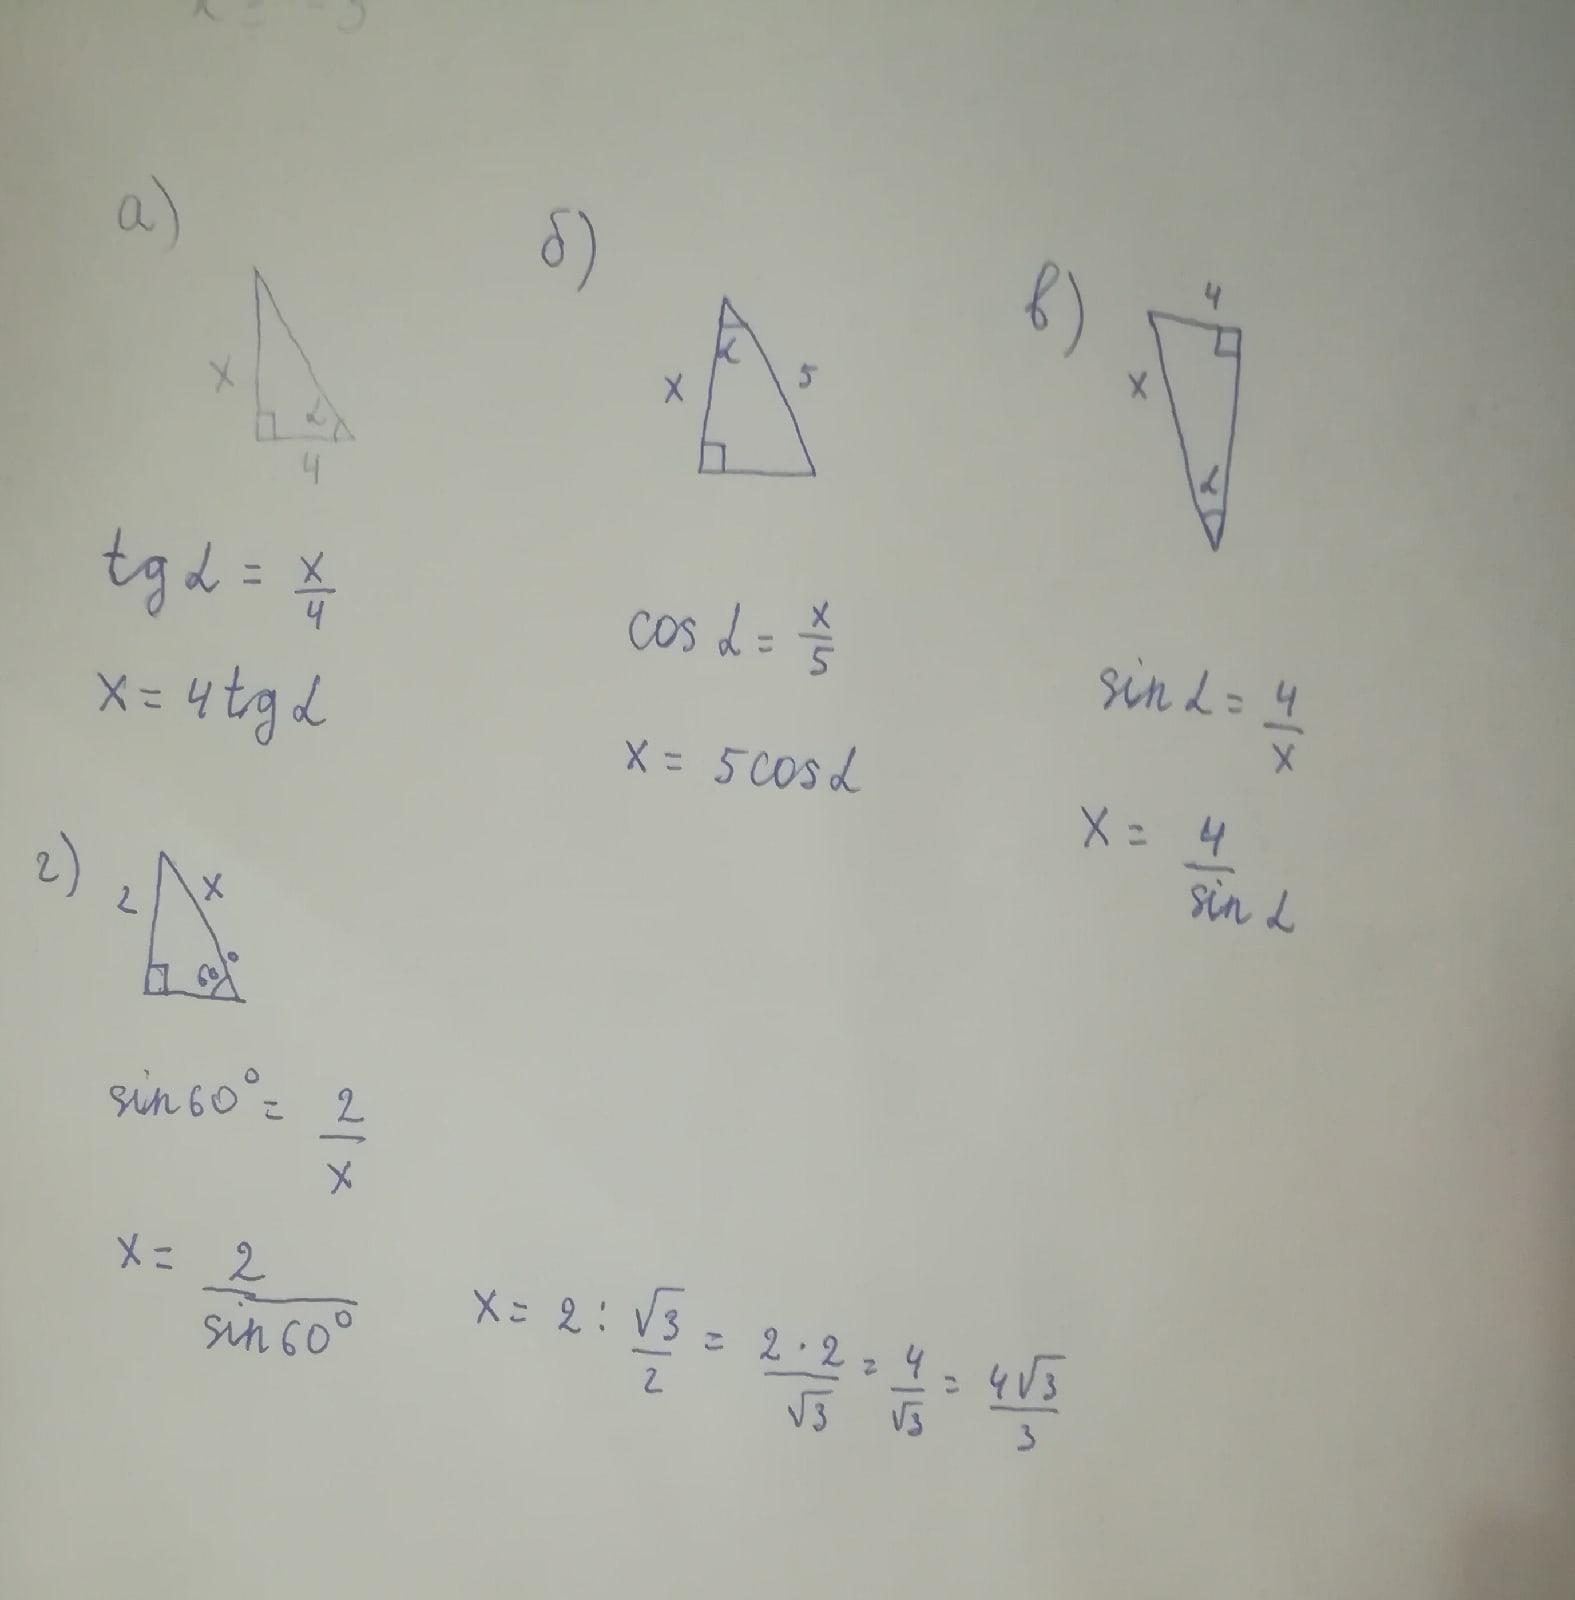 а)
x
α
4
tg α = x/4
x = 4 tg α
б)
α
x
5
cos α = x/5
x = 5 cos α
в)
4
x
α
sin α = 4/x
x = 4/sin α
г)
2
x
60°
sin 60° = 2/x
x = 2/sin 60°
x = 2 : √3/2 = 2·2/√3 = 4/√3 = 4√3/3